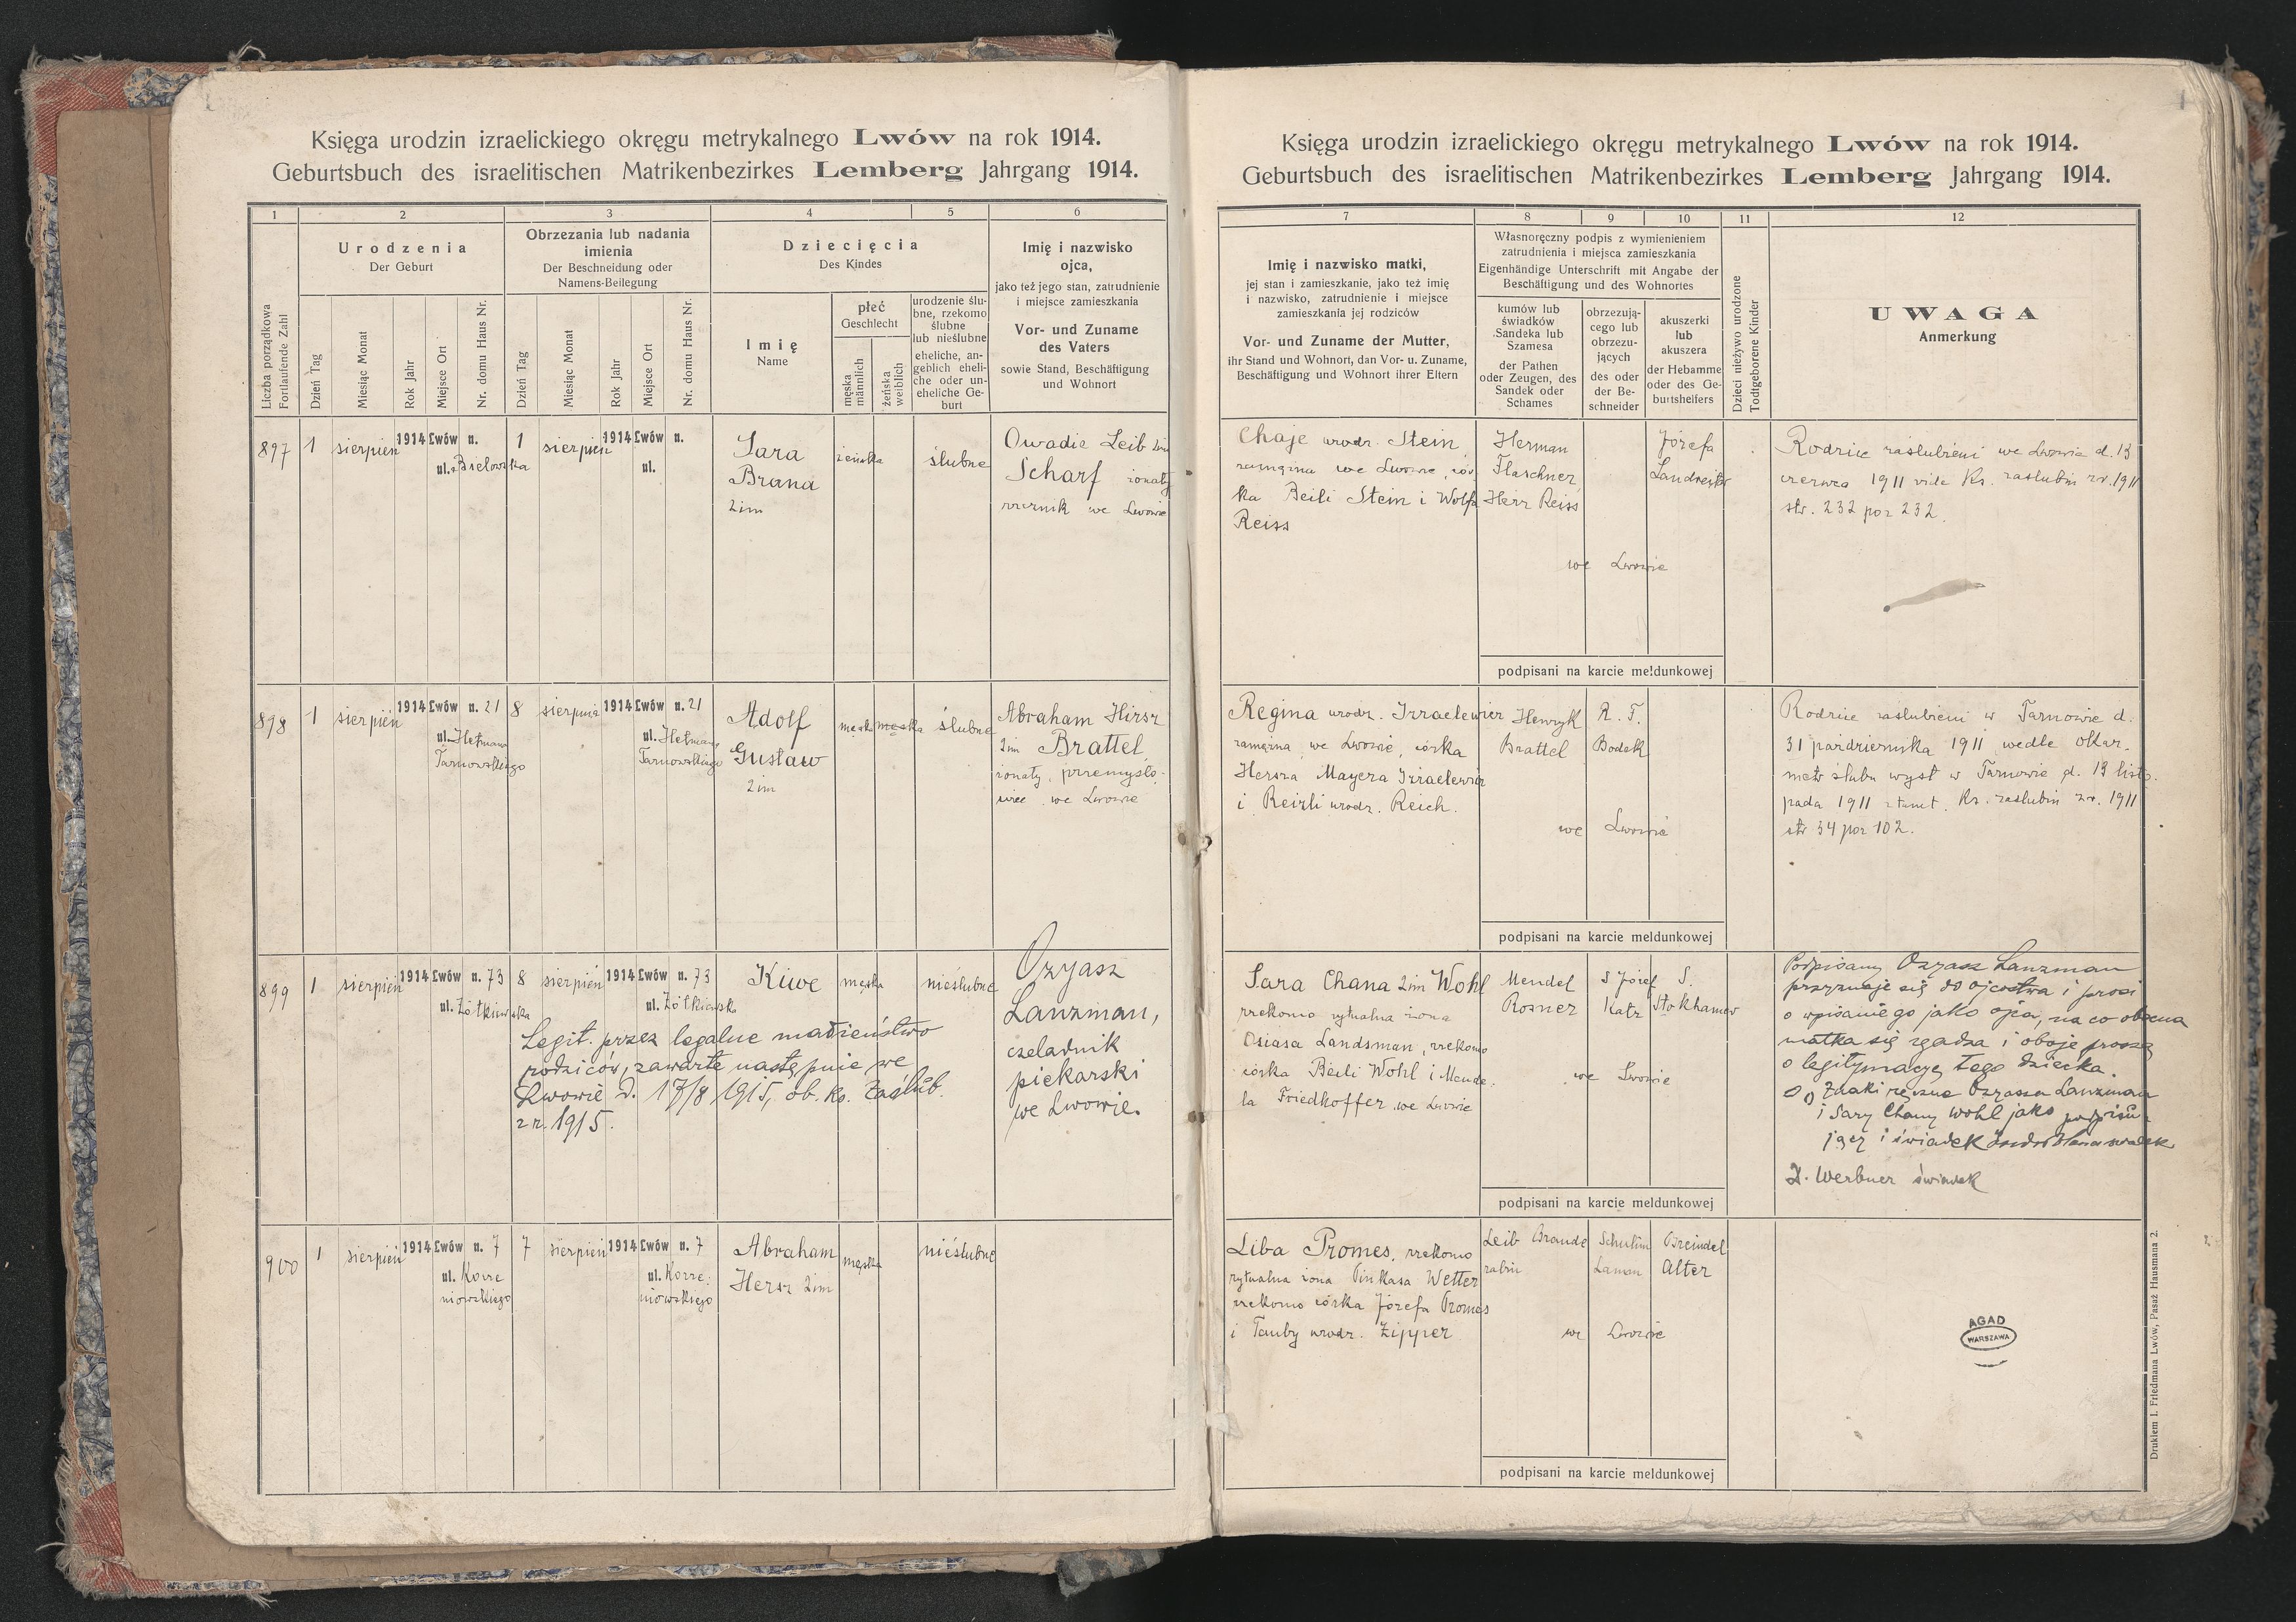 Księga urodzin izraelickiego okręgu metrykalnego Lwów na rok 1914.
Geburtsbuch des israelitischen Matrikenbezirkes Lemberg Jahrgang 1914.
1 2 3 4 5 6
Liczba porządkowa
Fortlaufende Zahl
Urodzenia
Der Geburt
Dzień Tag
Miesiąc Monat
Rok Jahr
Miejsce Ort
Nr. domu Haus Nr.
Obrzezania lub nadania
imienia
Der Beschneidung oder
Namens-Beilegung
Dzień Tag
Miesiąc Monat
Rok Jahr
Miejsce Ort
Nr. domu Haus Nr.
Dziecięcia
Des Kindes
Imię
Name
płeć
Geschlecht
męska
männlich
żeńska
weiblich
urodzenie ślu-
bne, rzekomo
ślubne
lub nieślubne
eheliche, an-
geblich eheli-
che oder un-
eheliche Ge-
burt
Imię i nazwisko
ojca,
jako też jego stan, zatrudnienie
i miejsce zamieszkania
Vor- und Zuname
des Vaters
sowie Stand, Beschäftigung
und Wohnort
897 1 sierpień 1914 Lwów n.
ul.
1 sierpień 1914 Lwów n.
ul.
Sara
Brana
2im
żeńska
ślubne
Owadie Leib 2im
Scharf żonaty
we Lwowie
898 1 sierpień 1914 Lwów n. 21
ul. Hetmana
Tarnowskiego
8 sierpnia 1914 Lwów n. 21
ul. Hetmana
Tarnowskiego
Adolf
Gustaw
2im
męska męska ślubne
Abraham Hirsz
2im Brattel
żonaty, przemysło-
wiec, we Lwowie
899 1 sierpień 1914 Lwów n. 73
ul. Żółkiewska
8 sierpień 1914 Lwów n. 73
ul. Żółkiewska
Kiwe
męska
nieślubne
Ozyasz
Lanzman,
czeladnik
piekarski
we Lwowie.
Legit. przez legalne małżeństwo
rodziców, zawarte następnie we
Lwowie d. 17/8 1915, ob. ks. zaślub.
z r. 1915.
900 1 sierpień 1914 Lwów n. 7
ul. Korze
niowskiego
7 sierpień 1914 Lwów n. 7
ul. Korze
niowskiego
Abraham
Hersz 2im
męska
nieślubne
Księga urodzin izraelickiego okręgu metrykalnego Lwów na rok 1914.
Geburtsbuch des israelitischen Matrikenbezirkes Lemberg Jahrgang 1914.
7 8 9 10 11 12
Imię i nazwisko matki,
jej stan i zamieszkanie, jako też imię
i nazwisko, zatrudnienie i miejsce
zamieszkania jej rodziców
Vor- und Zuname der Mutter,
ihr Stand und Wohnort, dan Vor- u. Zuname,
Beschäftigung und Wohnort ihrer Eltern
Własnoręczny podpis z wymienieniem
zatrudnienia i miejsca zamieszkania
Eigenhändige Unterschrift mit Angabe der
Beschäftigung und des Wohnortes
kumów lub
świadków
Sandeka lub
Szamesa
der Pathen
oder Zeugen, des
Sandek oder
Schames
obrzezują-
cego lub
obrzezu-
jących
des oder
der Be-
schneider
akuszerki
lub
akuszera
der Hebamme
oder des Ge-
burtshelfers
Dzieci nieżywo urodzone
Todtgeborene Kinder
UWAGA
Anmerkung
Chaje urodz. Stein
zamężna we Lwowie, cór
ka Beili Stein i Wolfa
Reiss
Herman
Flaschner
Herz Reiss
Józefa
we Lwowie
podpisani na karcie meldunkowej
Rodzice zaślubieni we Lwowie d. 13
czerwca 1911 vide Ks. zaślubin z r. 1911
str. 232 poz 232.
Regina urodz. Izraelewicz
zamężna we Lwowie, córka
Hersza Mayera Izraelewicz
i Reizli urodz. Reich.
Henryk
Brattel
R. F.
Bodek
we Lwowie
podpisani na karcie meldunkowej
Rodzice zaślubieni w Tarnowie d.
31 października 1911 wedle okaz.
metr ślubu wyst w Tarnowie d. 13 listo-
pada 1911 z tamt. Ks. zaślubin z r. 1911
str 34 poz 102.
Sara Chana 2im Wohl
rzekomo rytualna żona
Osiasa Landsman, rzekomo
córka Beili Wohl i Mende
la Friedhoffer we Lwowie
Mendel
Rosner
S Józef
Katz
S.
Stokhamer
we Lwowie
podpisani na karcie meldunkowej
Podpisany Ozyasz Lanzman
przyznaje się do ojcostwa i prosi
o wpisanie go jako ojca, na co obecna
matka się zgadza i oboje proszą
o legitymację tego dziecka.
Znaki ręczne Ozyasza Lanzmana
i Sary Chany Wohl jako podpisu
jący i świadek
Z. Werbner świadek
Liba Promes, rzekomo
rytualna żona Pinkasa Wetter
rzekomo córka Józefa Promes
i Tauby urodz. Zipper
Leib Braude
rabin
Schulim
Breindel
Alter
we Lwowie
podpisani na karcie meldunkowej
AGAD
WARSZAWA
Drukiem I. Friedmana Lwów, Pasaż Hausmana 2.